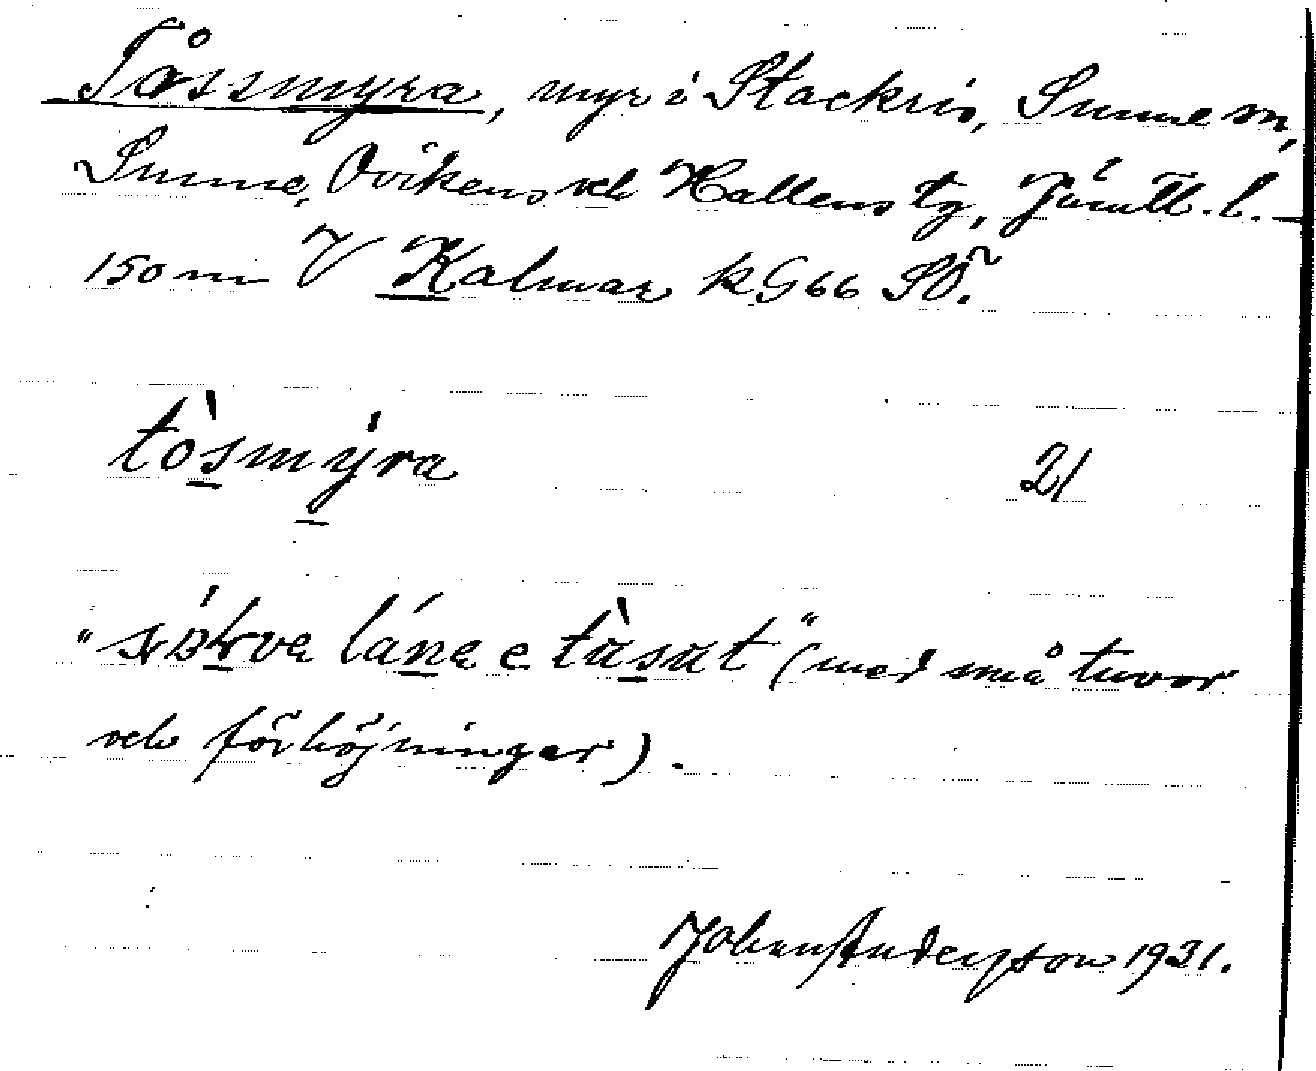 Tåssmyra, myr i Stackris, Sunne sn,
Sunne, Ovikens och Hallens tg, Jämtl. l.
150 m V Kalmar k G66 SÖ.
tòsmýra 21
e tàsut" (med små tuvor
och förhöjningar).
Johan Anderson 1931.